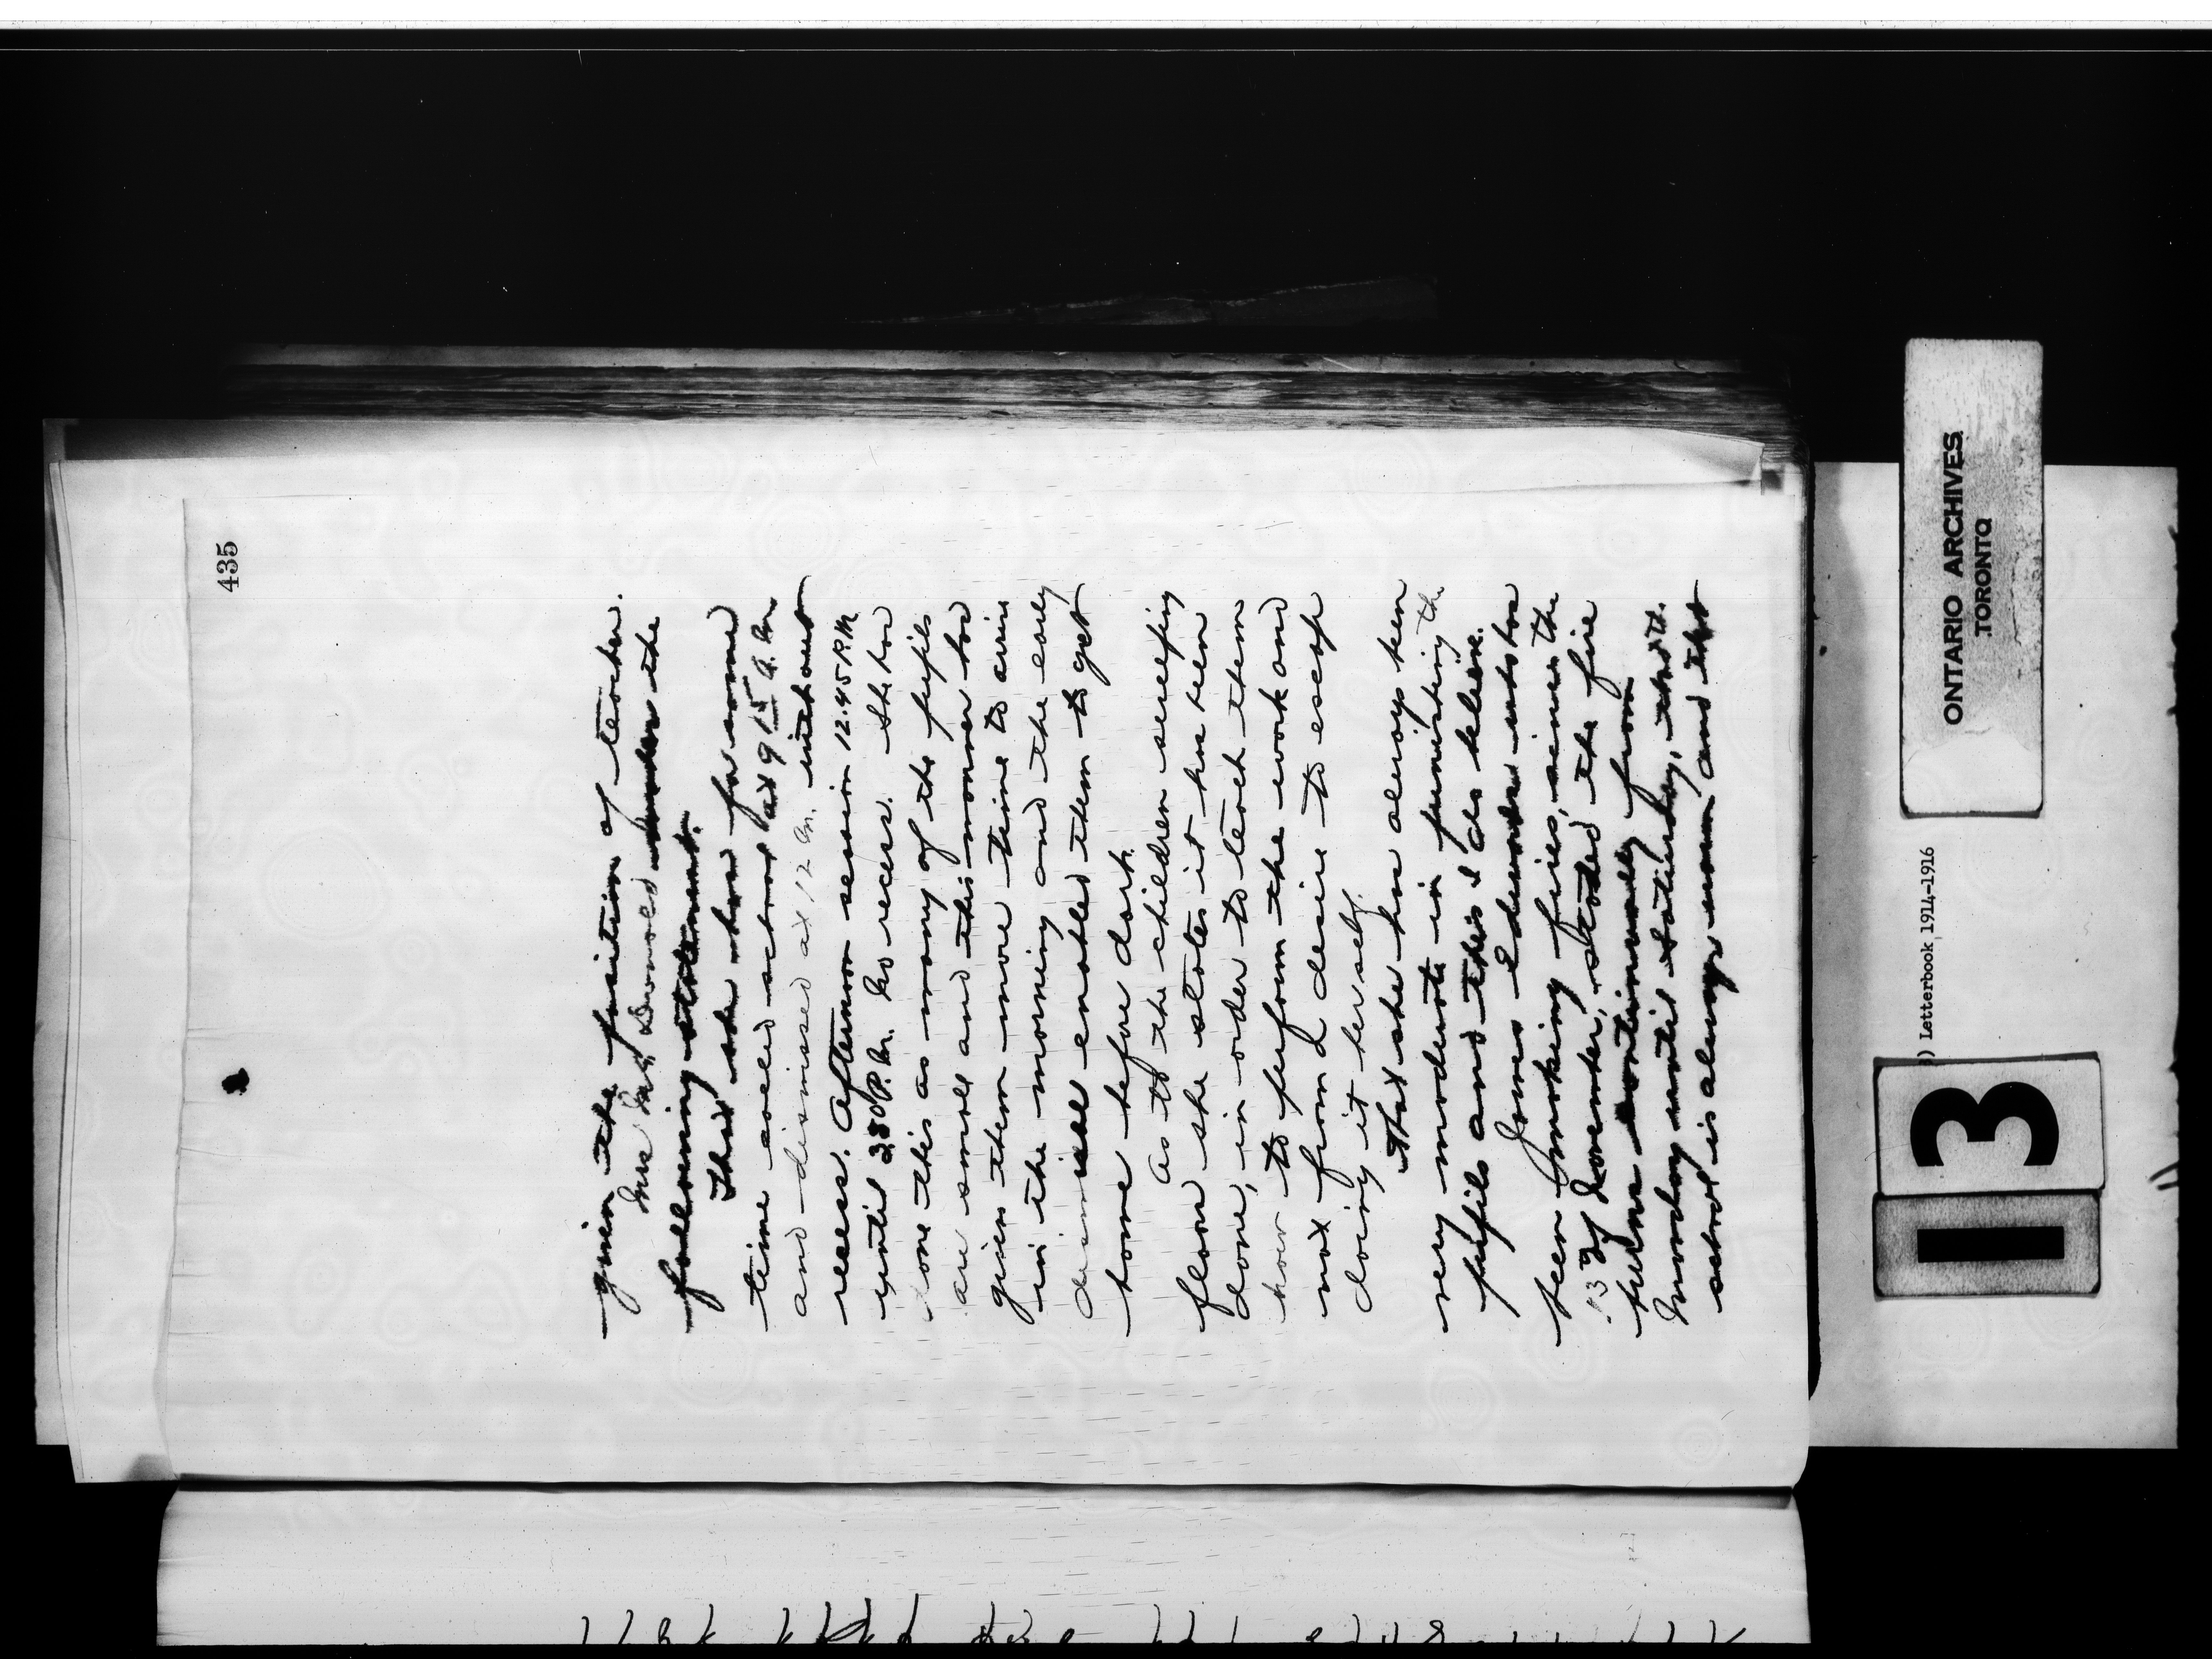 435
given the position of teacher.
Mrs McDonald makes the
following statement.
That she has for some
time called school at 9 15 a.m
and dismissed at 12 m. without
recess. Afternoon session 12.45 P.M
until 2.30 P.M. No recess. She has
done this as many of the pupils
are small and this manner has
given them more time to arrive
in the morning and the early
dismissal enabled them to get
home before dark.
As to the children sweeping
floor she states it has been
done, in order to teach them
how to perform the work and
not from a desire to escape
doing it herself.
That she has always been
very moderate in punishing the
pupils and this I do believe.
James Edwards who has
been making fires, since the
13th of November, stated the fire
burns continually from
Monday until Saturday, that
school is always warm and that
ONTARIO ARCHIVES
TORONTO
) Letterbook 1914-1916
13